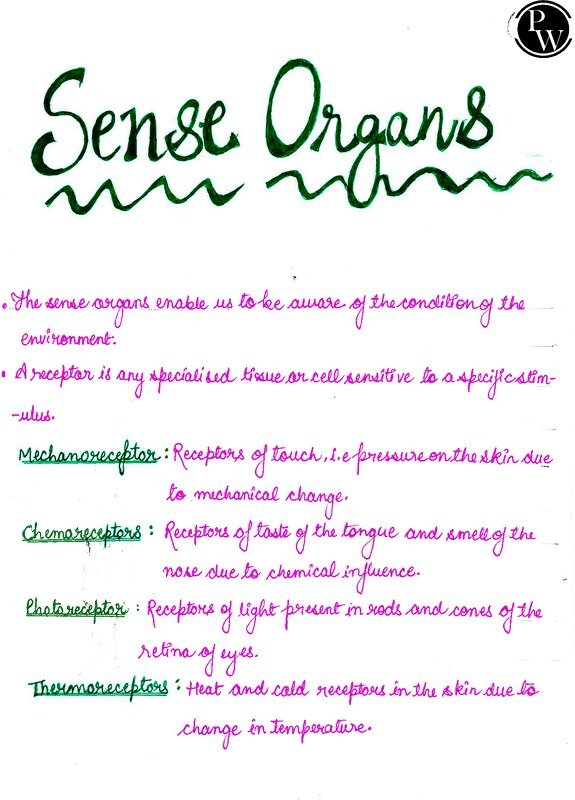 PW
Sense Organs
• The sense organs enable us to be aware of the condition of the
environment.
• A receptor is any specialised tissue or cell sensitive to a specific stim-
-ulus.
Mechanoreceptor : Receptors of touch, i.e pressure on the skin due
to mechanical change.
Chemoreceptors : Receptors of taste of the tongue and smell of the
nose due to chemical influence.
Photoreceptor : Receptors of light present in rods and cones of the
retina of eyes.
Thermoreceptors : Heat and cold receptors in the skin due to
change in temperature.